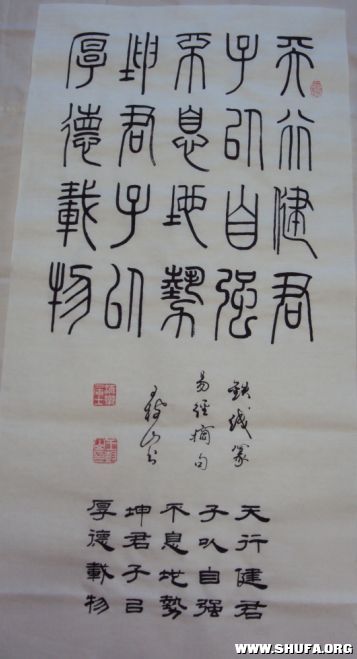 天行健君
子以自强
不息地勢
坤君子以
厚德載物
鉄綫篆
易經摘句
天行健君
子以自强
不息地勢
坤君子以
厚德載物
WWW.SHUFA.ORG